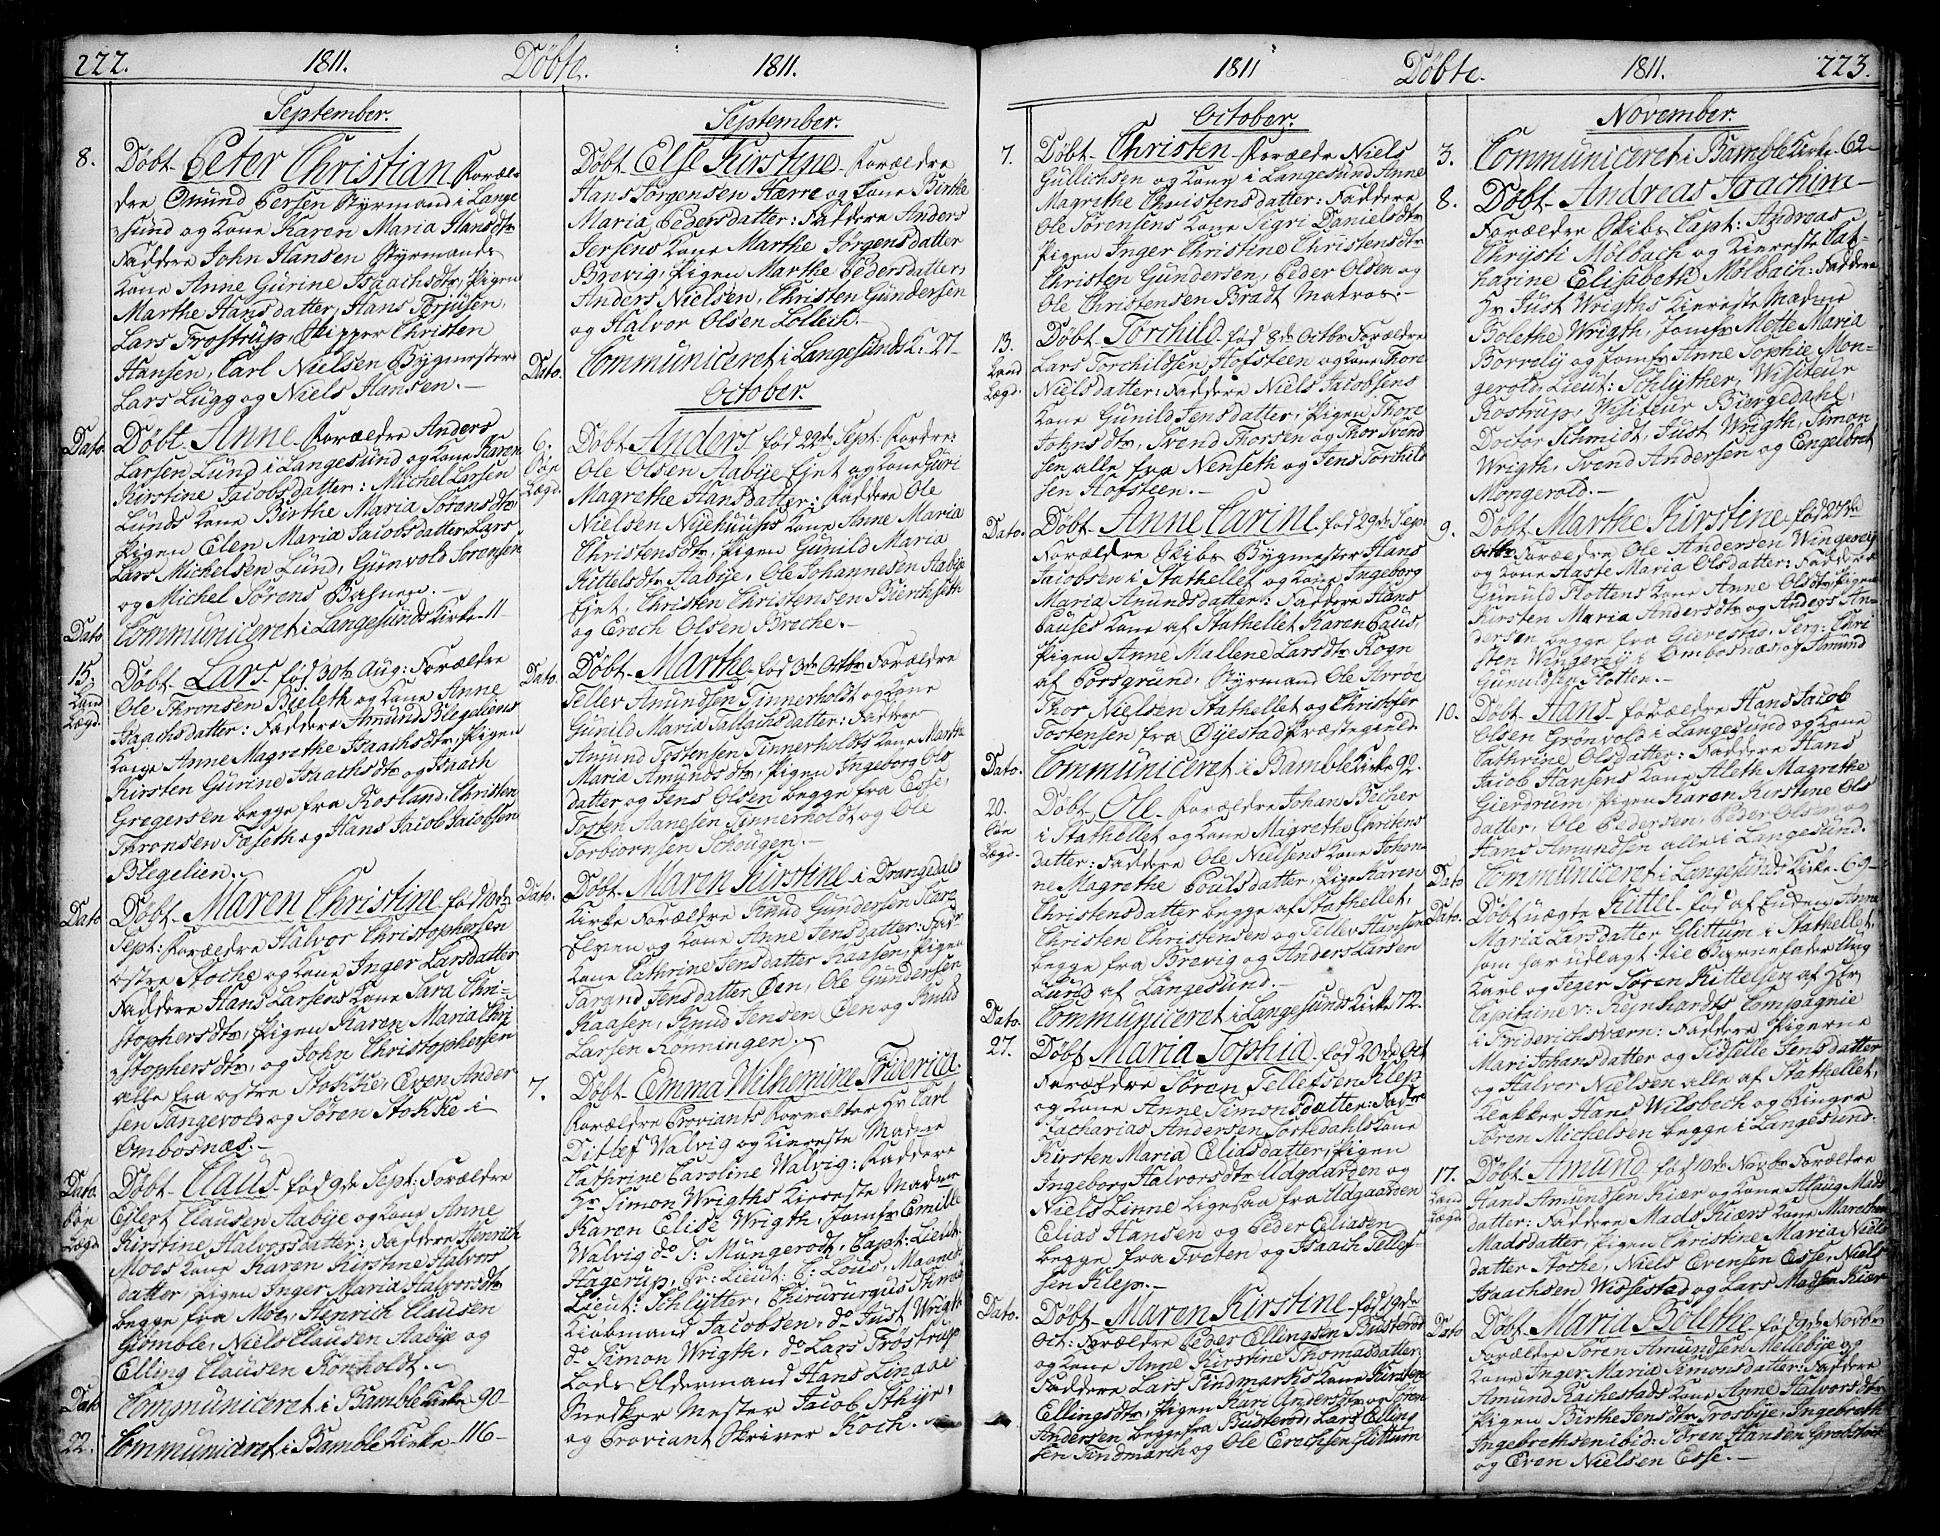 222. 1811. Døbte. 1811.
September.
8. Døbt Peter Christian Foræl-
dre Omund Persen Styrmand i Lange
sund og Kone Karen Maria Hansdtr
Faddere John Hansen Styrmands
Kone Anne Gurine Isaachsdtr, Pigen
Marthe Hansdatter, Hans Terjusen,
Lars Trostrup, Skipper Christen
Hansen, Carl Nielsen Bygmester
Lars Lugg og Niels Hansen.
Dato. Døbt Anne Forældre Anders
Larsen Lund i Langesund og Kone Karen
Kirstine Jacobsdatter: Michel Larsen
Lunds Kone Birthe Maria Sørensdtr
Pigen Elen Maria Jacobsdatter, Lars
Lars Michelsen Lund, Gunvold Sørensen
og Michel Sørens
Dato Communiceret i Langesunds Kirke 11
15. Land Lægd. Døbt Lars fød 30te Aug: Forældre
Ole Thronsen Bieleth og Kone Anne
Isaachsdatter: Faddere Amund Blegeliens
Kone Anne Magrethe Isaachsdtr, Pigen
Kirsten Gurine Isaachsdtr og Isaach
Gregersen begge fra Rosland, Christen
Thronsen Faseth og Hans Jacob Jacobsen
Blegelien.
Dato Døbt Maren Christine fød 10de
Sept: Forældre Halvor Christophersen
østre Stoche og Kone Inger Larsdatter
Faddere Hans Larsens Kone Sara Chri-
stophersdtr, Pigen Karen Maria Chri
stophersdtr, og John Christophersen
alle fra østre Stokke, Even Ander
sen Tangevold og Søren Stokke i
Ombosnæs.
Dato. Søe Lægd Døbt Claus fød 9de Sept: Forældre
Ejlert Clausen Aabye og Kone Anne
Kirstine Halvorsdatter: Faddere Henrich
Moes Kone Karen Kirstine Halvors
datter, Pigen Inger Maria Halvorsdtr
begge fra Moe, Henrich Clausen
Gumble, Niels Clausen Aabye og
Elling Clausen Ronholdt.
Dato Communiceret i Bamble Kirke 90
22. Communiceret i Bamble Kirke 116
September.
Døbt Else Kirstine Forældre
Hans Jørgensen Hærre og Kone Birthe
Maria Pedersdatter: Faddere Anders
Jersens Kone Marthe Jørgensdatter
Brevig, Pigen Marthe Pedersdatter,
Anders Nielsen, Christen Gundersen
og Halvor Olsen Lollick.
Dato. Communiceret i Langesunds K. 27
October.
6. Søe Lægd. Døbt Anders fød 29de Sept: Fordre:
Ole Olsen Aabye Ejet og Kone Guri
Magrethe Hansdatter: Faddere Ole
Nielsen Nyehuusets Kone Anne Maria
Christensdtr, Pigen Gunild Maria
Kittelsdtr Aabye, Ole Johannesen Aabye
Ejet, Christen Christensen Bierchseth
og Erech Olsen Breche.
Dato. Døbt Marthe fød 3de Octbr Forældre
Tellev Amundsen Tinnerholdt og Kone
Gunild Maria Tallachsdatter: Faddere
Amund Tostensen Tinnerholdts Kone Marthe
Maria Amundsdtr, Pigen Ingeborg Ols
datter og Jens Olsen begge fra Esse,
Tosten Aanesen Tinnerholdt og Ole
Torbiørnsen Schougen.
Dato. Døbt Maren Kirstine i Drangedals
Kirke Forældre Knud Gundersen Kars
Elven og Kone Anne Jensdatter: Fadr
Kone Cathrine Jensdatter Kaasen, Pigen
Targund Jensdatter Øen, Ole Gundersen
Kaasen, Knud Jensen Øen og Knud
Larsen Rønningen.
7. Døbt Emma Wilhemine Friderica.
Forældre Proviants Forvalter Hr Carl
Ditlef Walvig og Kiereste Madme
Cathrine Caroline Walvig: Faddere
Hr Simon Wrigths Kiereste Madme
Karen Elise Wrigth, Jomfr Emilie
Walvig do S: Mungerodt, Capt: Lieut:
Hagerup, Pr: Lieut: C: Lous, Maanets-
Lieut: Schlytter, Chirururgus Schmidt
Kiøbmand Jacobsen, do Just Wrigth
do Simon Wrigth, do Lars Trostrup
Lods Oldermand Hans Linaae
Snedker Mester Jacob Sthye,
og Proviant Skriver Koch.
1811 Døbte. 1811. 223.
October.
7. Døbt Christen Forældre Niels
Gullichsen og Kone i Langesund Anne
Magrethe Christensdatter: Faddere
Ole Sørensens Kone Sigri Danielsdtr
Pigen Inger Christine Christensdtr
Christen Gundersen, Peder Olsen og
Ole Christensen Bradt Matros.
13. Land Lægd. Døbt Torchild fød 8de Octbr Forældre
Lars Torchildsen Hofsteen og Kone Thore
Nielsdatter: Faddere Niels Jacobsens
Kone Gunild Jensdatter, Pigen Thore
Johnsdtr, Svend Thorsen og Thor Svend
sen alle fra Nenseth og Jens Torchild
sen Hofsteen.
Dato. Døbt Anne Carine fød 29de Sep:
Forældre Skibs Bygmester Hans
Jacobsen i Stathellet og Kone Ingeborg
Maria Amundsdatter: Faddere Hans
Pauses Kone af Stathellet Karen Paus,
Pigen Anne Mallene Larsdtr Rogn
af Porsgrund, Styrmand Ole Arrøe
Thor Nielsen Stathellet og Christofer
Tostensen fra Øyestad Præstegield.
Dato. Communiceret i Bamble Kirke 92.
20. Søe Lægd. Døbt Ole Forældre Johan Becher
i Stathellet og Kone Magrethe Christens
datter: Faddere Ole Nielsens Kone Johan-
ne Magrethe Poulsdatter, Pige Karen
Christensdatter begge af Stathellet,
Christen Christensen og Tellev Hansen
begge fra Brevig og Anders Larsen
Lund af Langesund.
Dato. Communiceret i Langesunds Kirke 72.
27. Døbt Maria Sophia fød 20de Oct
Forældre Søren Tellefsen Klep
og Kone Anne Simonsdatter: Faddre
Zacharias Andersen Sortedahls Kone
Kirsten Maria Eliasdatter, Pigen
Ingeborg Halvorsdtr Udgaarden og
Niels Linne Ligesaa fra Udgaarden
Elias Hansen og Peder Eliasen
begge fra Tveten og Isaach Tellef-
sen Klep.
Dato. Døbt Maren Kirstine fød 19de
Oct: Forældre Peder Ellingsen Busterød
og Kone Anne Kirstine Thomasdatter
Faddere Lars Findmarks Kone Kirsten
Ellingsdtr, Pigen Kari Andersdtr og Søren
Andersen begge fra Busterød, Lars Elling
sen Findmarch og Ole Erechsen Glittum
November.
3. Communiceret i Bamble Kirke 62
8. Døbt Andreas Joachim
Forældre Skibs Capt: Andreas
Chrijsti Mølbach og Kiereste Cat-
harine Elisabeth Mølbach: Faddere
Hr Just Wrigths Kiereste Madme
Bolethe Wrigth, Jomfr Mette Maria
Borrely og Jomfr Anne Sophie Mon-
gerold, Lieut: Schlyther, Wisiteur
Rostrup, Wisiteur Biergedahl,
Doctor Schmidt, Just Wrigth, Simon
Wrigth, Svend Andersen og Engelbret
Mongerold.
9. Døbt Marthe Kirstine fød 27de
Octbr Forældre Ole Andersen Wingereij
og Kone Aaste Maria Olsdatter: Faddere
Gunuld Flottens Kone Anne Olsdtr, Pigen
Kirsten Maria Andersdtr og Anders An-
dersen begge fra Gierestad, Serg: Chri
sten Wingereij i Ombosnæs og Amund
Gunuldsen Flotten.
10. Døbt Hans Forældre Hans Jacob
Olsen Grønvold i Langesund og Kone
Cathrine Olsdatter: Faddere Hans
Jacob Hansens Kone Aleth Magrethe
Gierdrum, Pigen Karen Kirstine Ols
datter, Ole Pedersen, Peder Olsen og
Hans Amundsen alle i Langesund.
Dato Communiceret i Langesunds Kirke 69
Dato. Døbt uægte Kittel fød af Enden Anna
Maria Larsdatter Glittum i Stathellet,
som har udlagt til Barnefader Ung
Karl og Jeger Søren Kittelsen af Hr
Capitaine v: Rejnhardts Compagnie
i Friderichsværn: Faddere Pigerne
Mari Johansdatter og Sidselle Jensdatter
og Halvor Nielsen alle af Stathellet,
Klokker Hans Wilsbech og Ringer
Søren Michelsen begge i Langesund.
17. Land Lægd Døbt Amund fød 10de Novbr Forældre
Hans Amundsen Kiær og Kone Aslaug Mads
datter: Faddere Mads Kiærs Kone Marethe
Madsdatter, Pigen Christine Maria Niels
datter Stoke, Niels Evensen Esse, Niels
Isaachsen Wissestad og Lars Madsen Kiær
Dato Døbt Maria Bolethe fød 9de Novbr
Forældre Søren Amundsen Mellebye og
Kone Inger Maria Simonsdatter: Faddere
Amund Rachestads Kone Anne Halvorsdtr
Pigen Birthe Jensdtr Trosbye, Ingebreth
Ingebrethsen ibid: Søren Hansen
og Even Nielsen Esse.